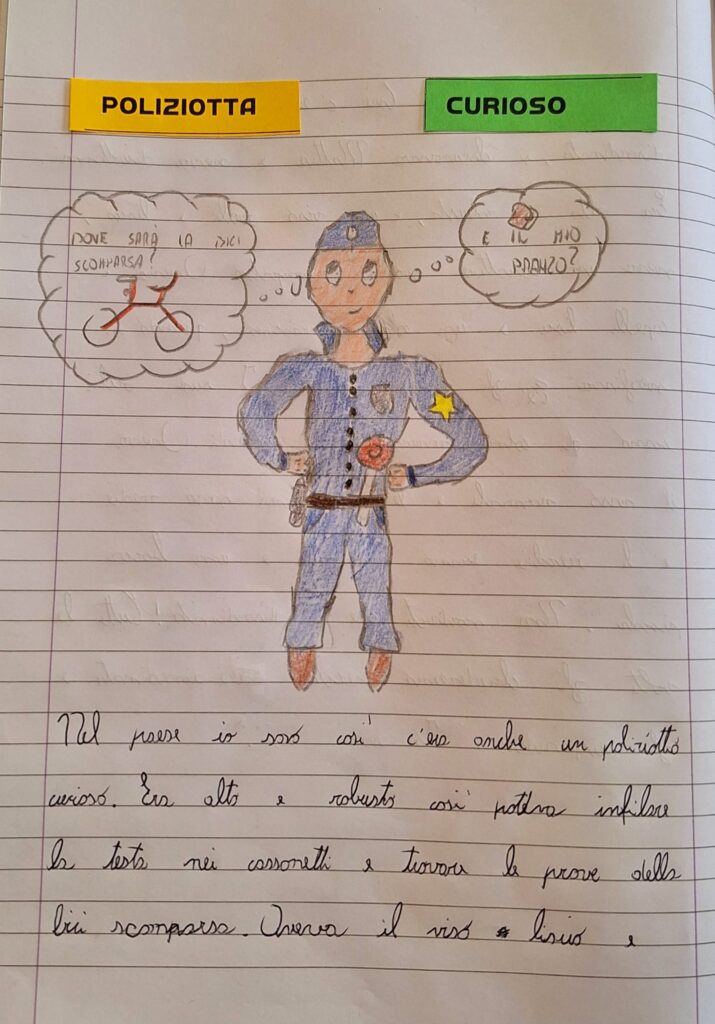 POLIZIOTTA
CURIOSO
DOVE SARÀ LA BICI
SCOMPARSA?
E IL MIO
PRANZO?
Nel paese io sono così c'era anche un poliziotto
curioso. Era alto e robusto così poteva infilare
la testa nei cassonetti e trovare le prove della
bici scomparsa. Aveva il viso liscio e